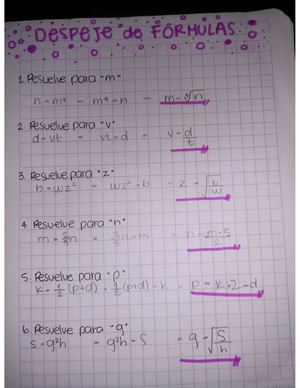 DESPEJE de FÓRMULAS
1. Resuelve para "m"
n = m⁴ = m⁴ = n = m = ∜n
2. Resuelve para "v"
d = vt = vt = d = v = d/t
3. Resuelve para "z"
b = wz² = wz² = b = z = √(b/w)
4. Resuelve para "n"
m = 2/5n = 2/5n = m = n = m·5/2
5. Resuelve para "p"
k = 1/2 (p+d) = 1/2 (p+d) = k = p = k·2 - d
6. Resuelve para "g"
S = g²h = g²h = S = g = √(S/h)